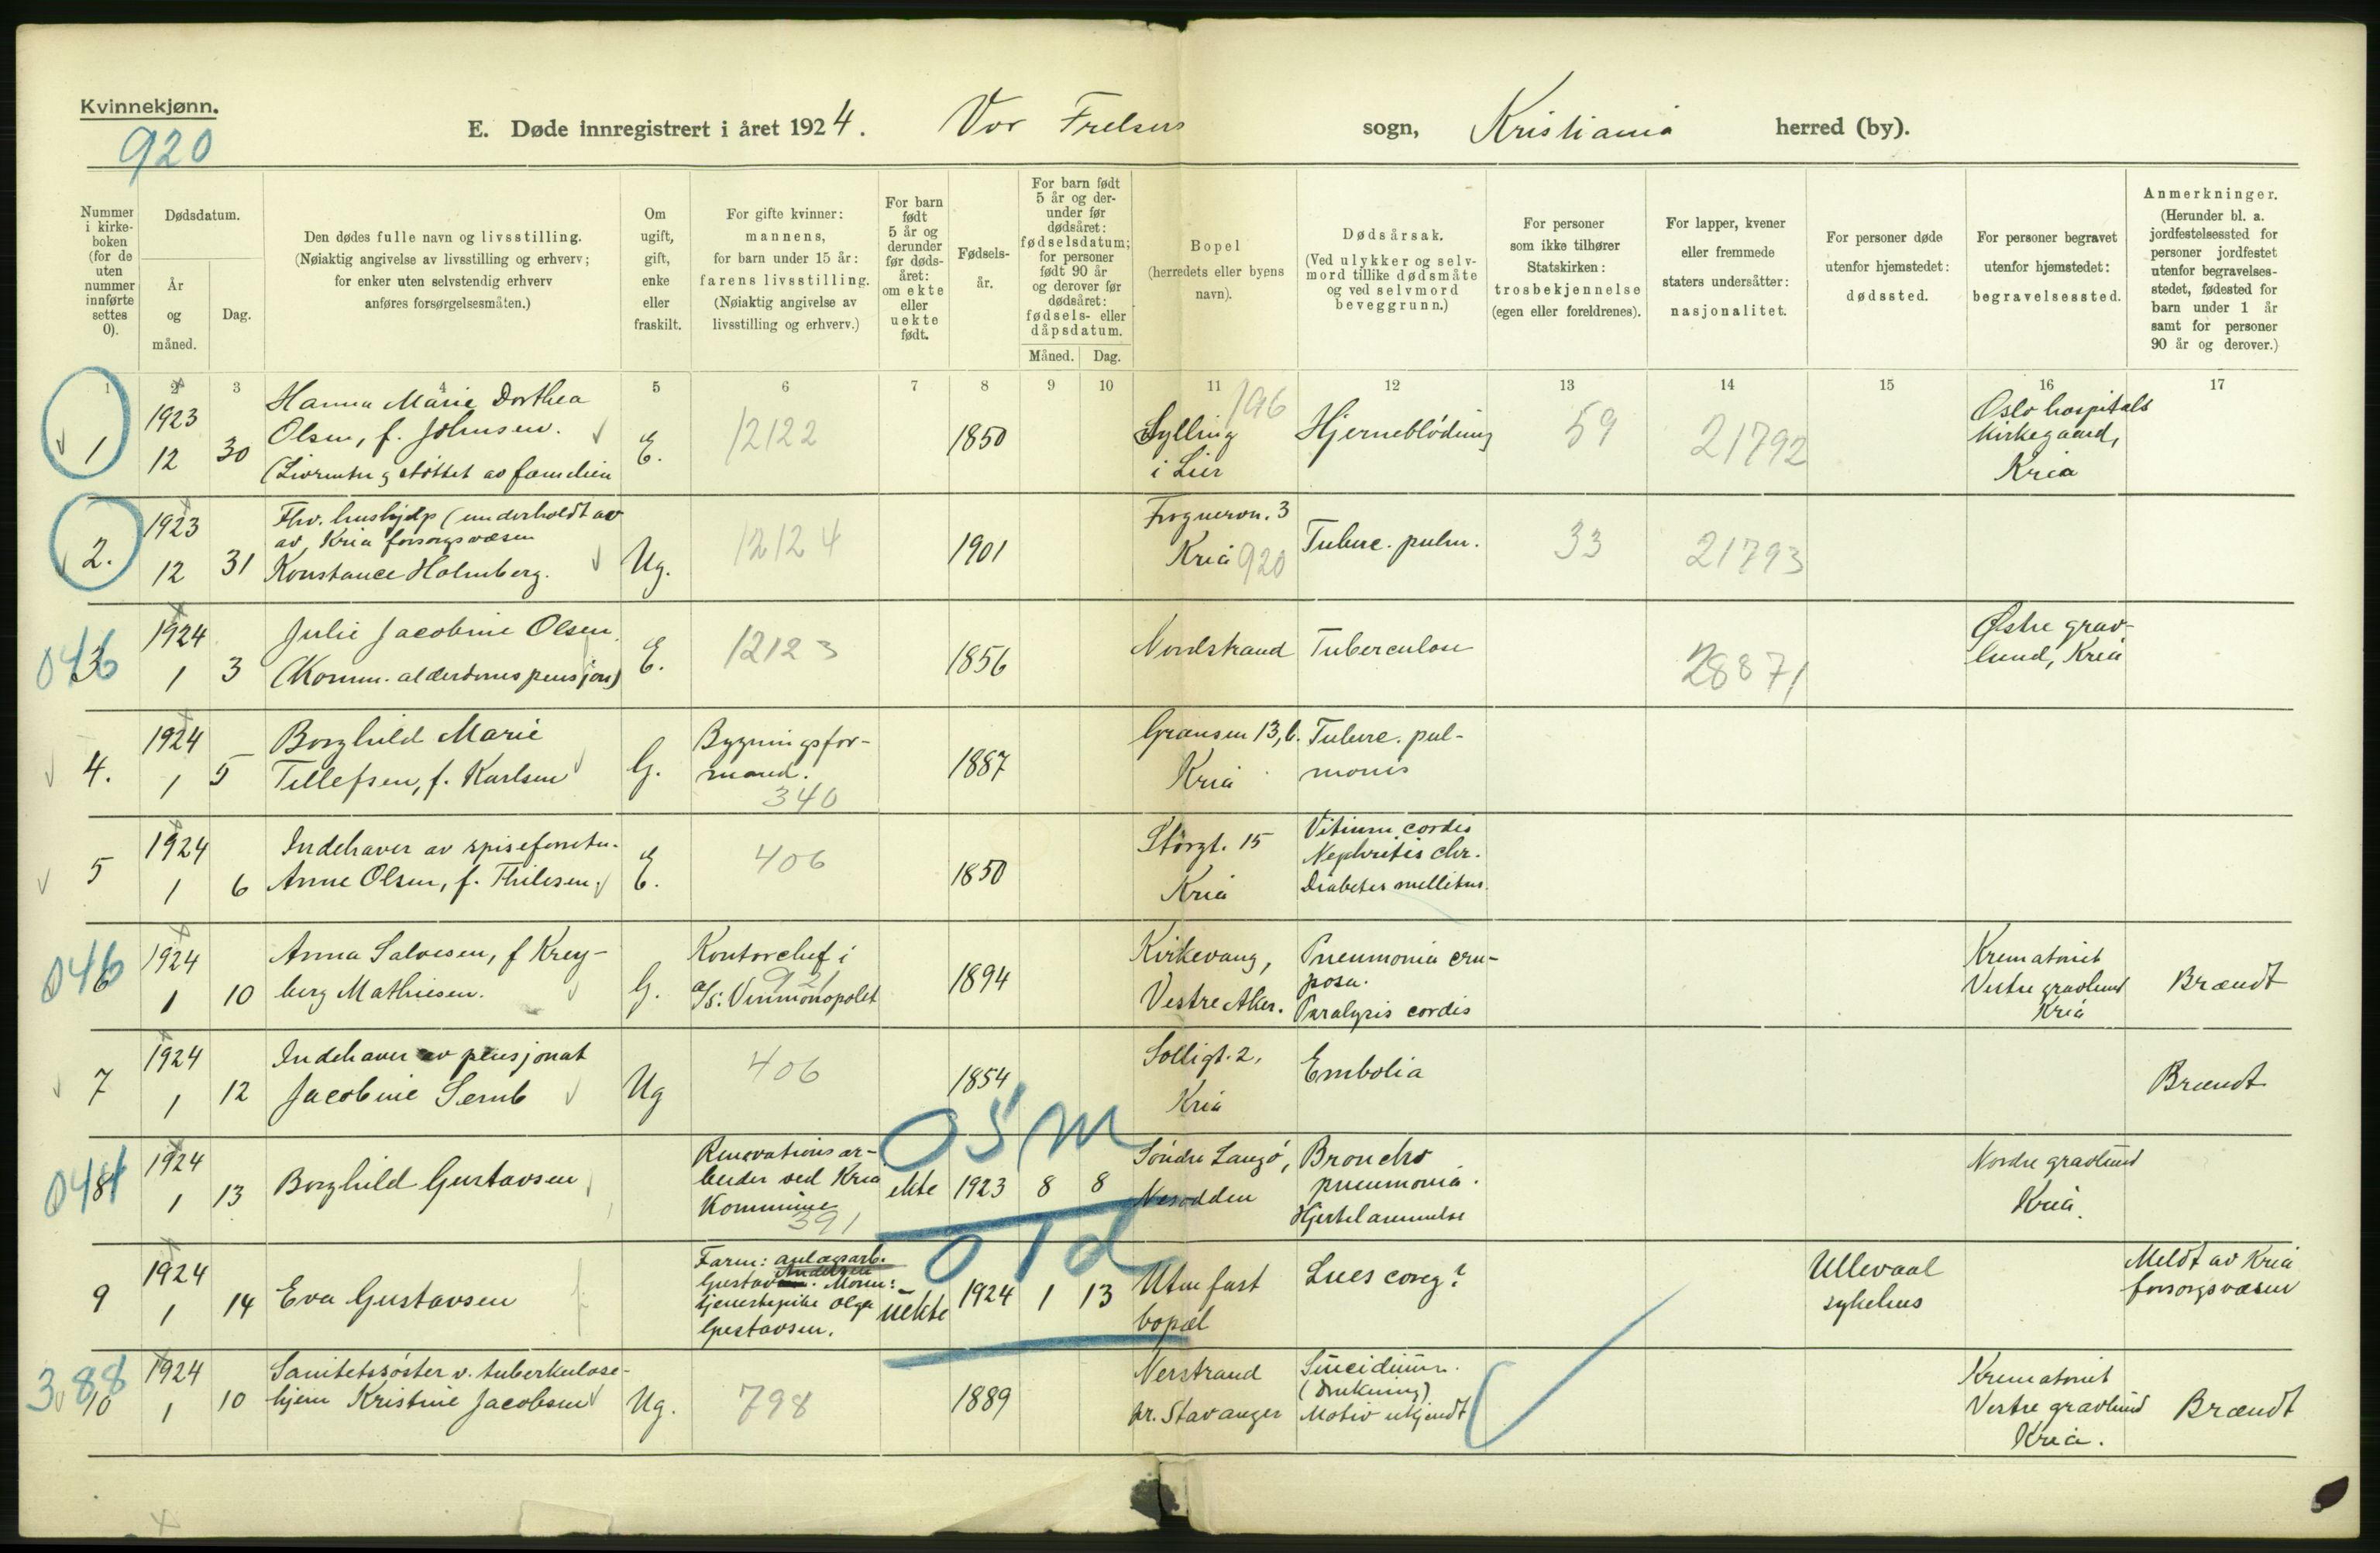 Kvinnekjønn.
920
E. Døde innregistrert i året 1924. Vor Frelsers sogn, Kristiania herred (by).
Nummer i kirke-boken (for de uten nummer innførte settes 0).
Dødsdatum.
År og måned.
Dag.
Den dødes fulle navn og livsstilling.
(Nøiaktig angivelse av livsstilling og erhverv;
for enker uten selvstendig erhverv
anføres forsørgelsesmåten.)
Om ugift, gift, enke eller fraskilt.
For gifte kvinner:
mannens,
for barn under 15 år:
farens livsstilling.
(Nøiaktig angivelse av
livsstilling og erhverv.)
For barn født 5 år og derunder før døds-året: om ekte eller uekte født.
Fødsels-år.
For barn født
5 år og der-
under før
dødsåret:
fødselsdatum;
for personer
født 90 år
og derover før
dødsåret:
fødsels- eller
dåpsdatum.
Måned. Dag.
Bopel
(herredets eller byens
navn).
Dødsårsak.
(Ved ulykker og selv-
mord tillike dødsmåte
og ved selvmord
beveggrunn.)
For personer
som ikke tilhører
Statskirken:
trosbekjennelse
(egen eller foreldrenes).
For lapper, kvener
eller fremmede
staters undersåtter:
nasjonalitet.
For personer døde
utenfor hjemstedet:
dødssted.
For personer begravet
utenfor hjemstedet:
begravelsessted.
Anmerkninger.
(Herunder bl. a.
jordfestelsessted for
personer jordfestet
utenfor begravelses-
stedet, fødested for
barn under 1 år
samt for personer
90 år og derover.)
1 2 3 4 5 6 7 8 9 10 11 12 13 14 15 16 17
1
1923
12 30
Hanna Marie Dorthea
Olsen, f. Johnsen.
(Livrente og støttet av familien
E.
12122
1850
196
Sylling
i Lier
Hjerneblødning
59
21792
Oslo hospitals
kirkegaard,
Kria
2.
1923
12 31
Fhv. hushjelp (underholdt av
av Kria forsorgsvæsen
Konstance Holmberg.
Ug.
12124
1901
Frognervn. 3
Kria 920
Tuberc. pulm.
33
21793
046
3
1924
1 3
Julie Jacobine Olsen
(Komm. alderdomspensjon)
E.
12123
1856
Nordstrand
Tuberculose
28871
Østre grav-
lund, Kria
4.
1924
1 5
Borghild Marie
Tellefsen, f. Karlsen
G.
Bygningsfor-
mand.
340
1887
Grønsen 13, b.
Kria
Tuberc. pul-
monis
5
1924
1 6
Indehaver av spiseforretn.
Anne Olsen, f. Thilesen,
E.
406
1850
Storgt. 15
Kria
Vitium cordis
Nephritis chr.
Diabetes mellitus.
046
6
1924
1 10
Anna Salvesen, f Krey-
berg Mathiesen.
G.
Kontorchef i
921
A/S: Vinmonopolet
1894
Kirkevang,
Vestre Aker.
Pneumonia cru-
posa.
Paralysis cordis
Krematoriet
Vestre gravlund
Kria
Brændt
7
1924
1 12
Indehaver av pensjonat
Jacobine Semb
Ug
406
1854
Solligt. 2,
Kria
Embolia
Brændt
8
1924
1 13
Borghild Gustavsen
Renovationsar-
beider ved Kria
Kommune
391
ekte
1923 8 8
Søndre Langø,
Nesodden
Broncho
pneumonia.
Hjertelammelse
Nordre gravlund
Kria
9
1924
1 14
Eva Gustavsen
Farm: anlægsarb.
Gustav Moren:
tjenestepike Olga
Gustavsen.
uekte
1924 1 13
Uten fast
bopæl
Lues cong?
Ullevaal
sykehus
Meldt av Kria
forsorgsvæsen
388
10
1924
1 10
Sanitetssøster v. tuberkulose-
hjem Kristine Jacobsen
Ug.
798
1889
Nerstrand
pr. Stavanger
Suicidium.
(Drukning)
Motiv ukjendt
Krematoriet
Vestre gravlund
Kria.
Brændt